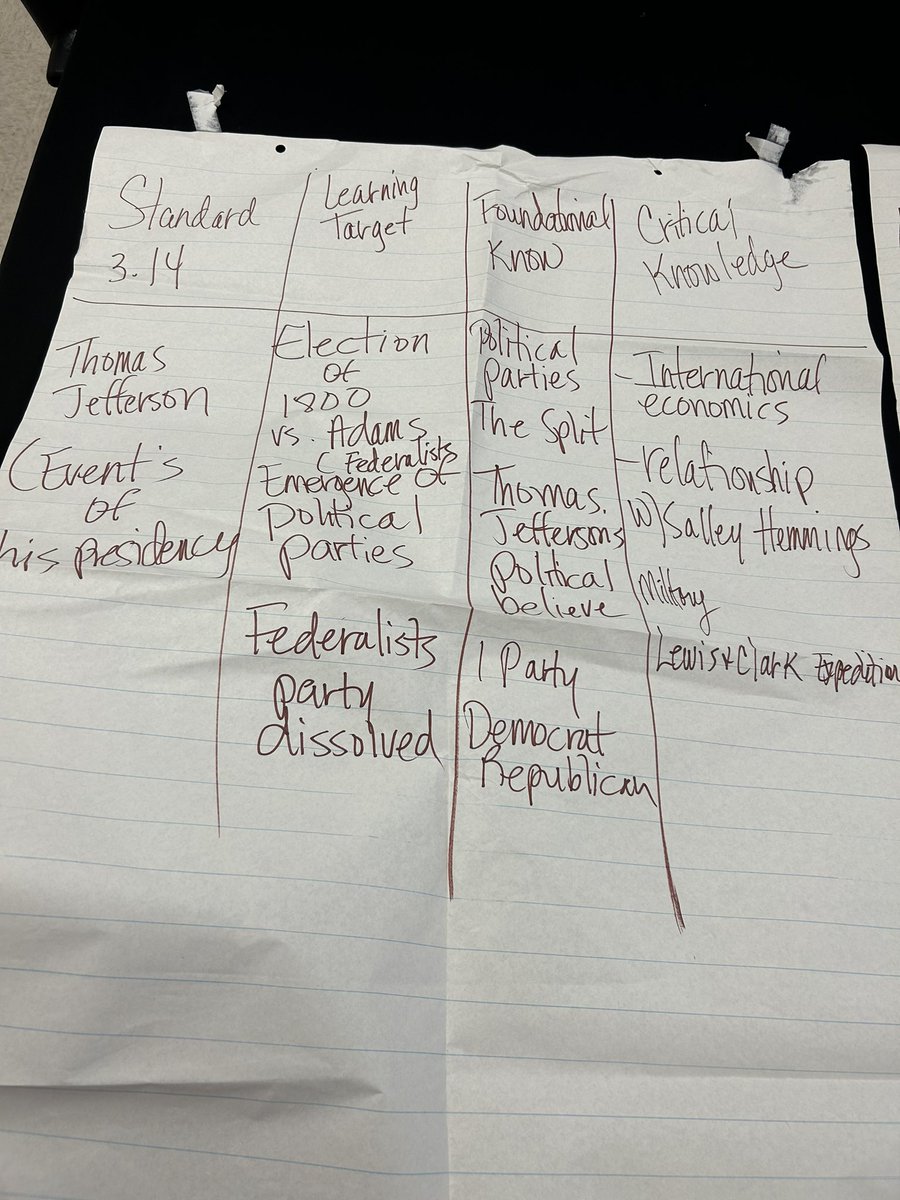 Standard
3.14
Thomas
Jefferson
(Event's
of
his presidency
Learning
Target
Election
of
1800
vs. Adams
( Federalists
Emergence of
political
parties
Federalists
party
dissolved
Foundational
Know
Political
parties
The Split
Thomas.
Jeffersons
political
believe
1 Party
Democrat
Republican
Critical
Knowledge
-International
economics
-relationship
w/Salley Hemmings
Military
Lewis & Clark Expedition